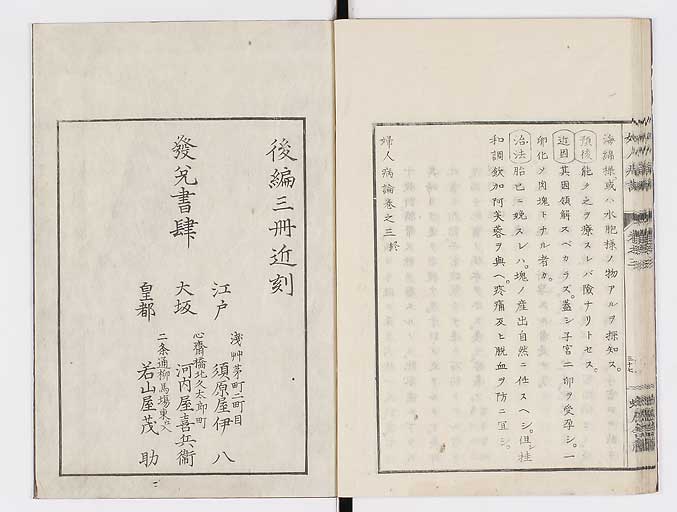 海綿様或ハ水胞様ノ物アルヲ探知ス。
預後 能ク之ヲ療スレバ險ナリトセス。
近因 其因領解スベカラズ。蓋シ子宮ニ卵ヲ受孕シ。一
卵化メ肉塊トナル者カ。
治法 胎已ニ娩スレハ。塊ノ産出自然ニ任スヘシ。但シ桂
和調飲加阿芙蓉ヲ與ヘ。疼痛及ヒ脱血ヲ防ニ宜シ。
婦人病論卷之三終
後編三冊近刻
發兌書肆
江戸
淺艸茅町二町目
須原屋伊八
大坂
心齋橋北久太郎町
河内屋喜兵衞
皇都
二条通柳馬場東入
若山屋茂助